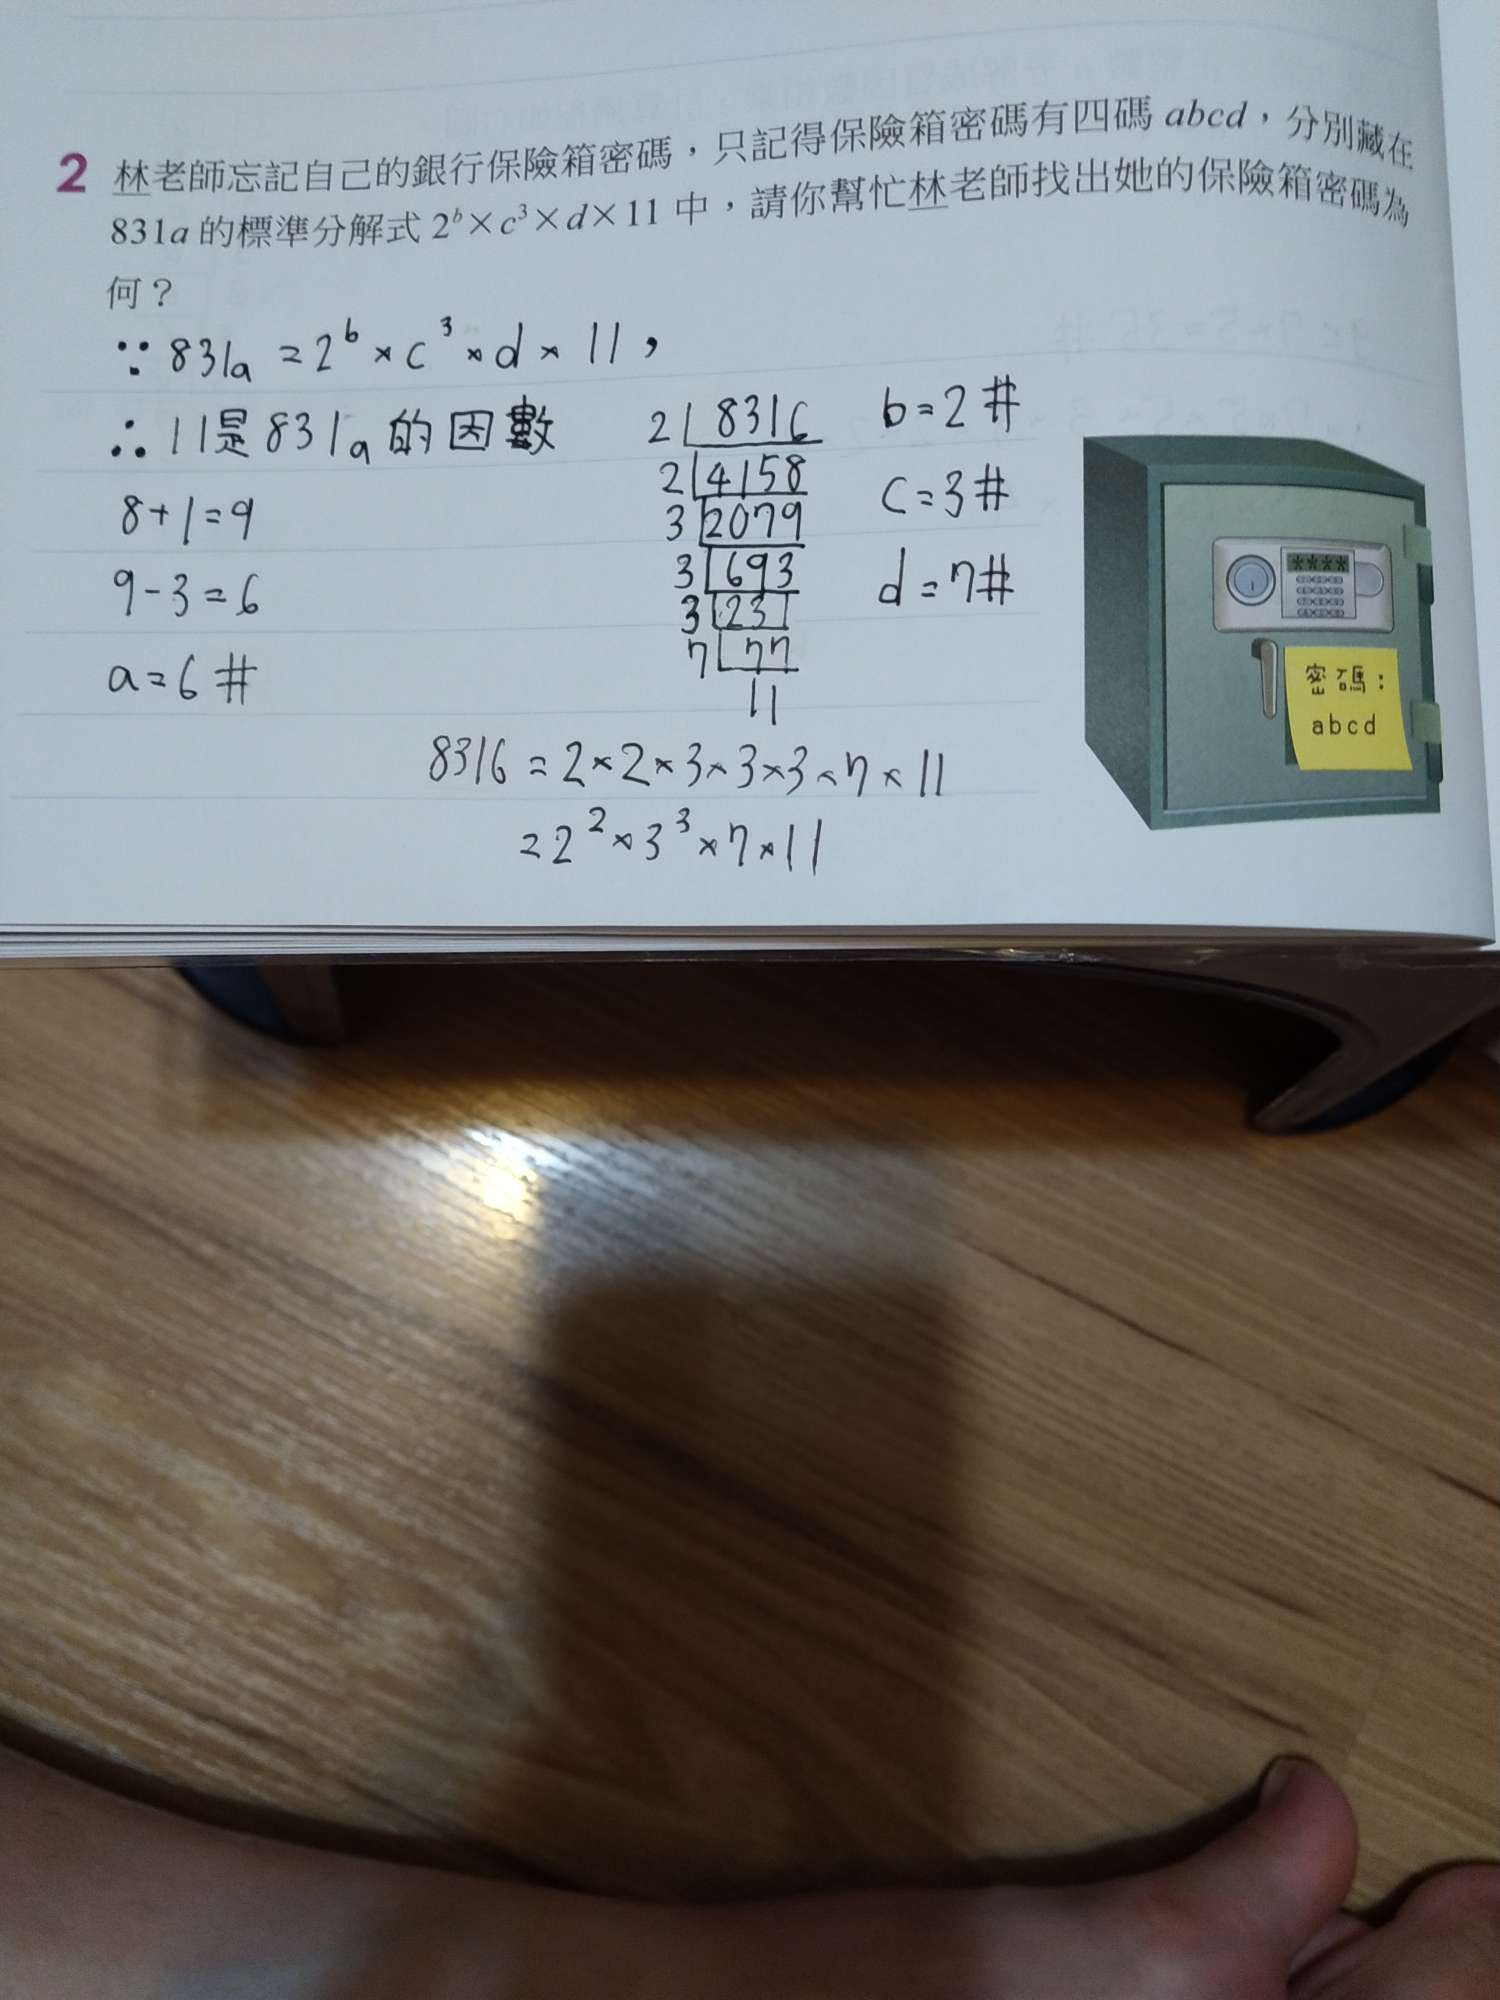 2 林老師忘記自己的銀行保險箱密碼，只記得保險箱密碼有四碼 abcd，分別藏在
831a 的標準分解式 2ᵇ×c³×d×11 中，請你幫忙林老師找出她的保險箱密碼為
何？
∵ 831a = 2ᵇ × c³ × d × 11，
∴ 11是831a的因數
8+1=9
9-3=6
a=6#
2 | 8316
2 | 4158
3 | 2079
3 | 693
3 | 231
7 | 77
11
b=2#
c=3#
d=7#
8316 = 2×2×3×3×3×7×11
=2²×3³×7×11
****
密碼：
abcd